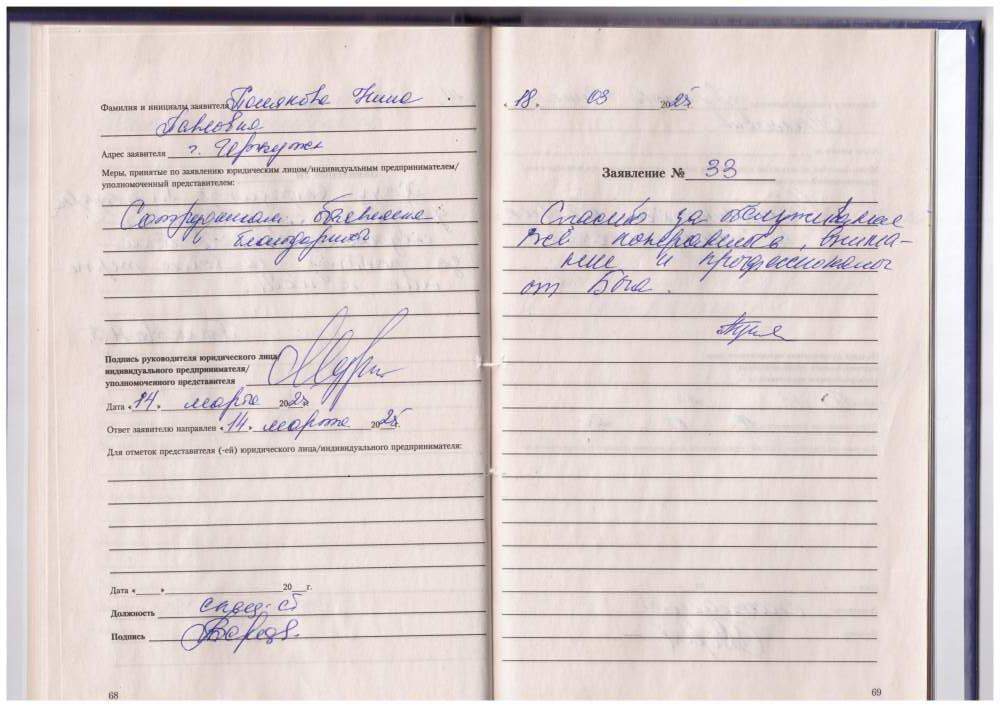 Фамилия и инициалы заявителя Полякова Нина
Павловна
Адрес заявителя г.
Меры, принятые по заявлению юридическим лицом/индивидуальным предпринимателем/
уполномоченный представителем:
Сотрудникам объявлена
благодарность
Подпись руководителя юридического лица/
индивидуального предпринимателя/
уполномоченного представителя
Дата «14» марта 2025г.
Ответ заявителю направлен «14» марта 2025г.
Для отметок представителя (-ей) юридического лица/индивидуального предпринимателя:
Дата «___» 20__г.
Должность
Подпись
68
«18» 03 2025г.
Заявление № 33
Спасибо за обслуживание
все понравилось, внима-
ние и профессионалы
от Бога.
69